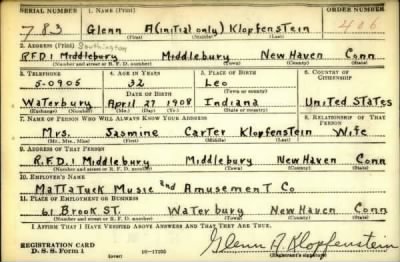 SERIAL NUMBER 1. NAME (Print) ORDER NUMBER
783 Glenn A(initial only) Klopfenstein 406
(First) (Middle) (Last)
2. ADDRESS (Print) Southington
R.F.D.1 Middlebury Middlebury New Haven Conn
(Number and street or R. F. D. number) (Town) (County) (State)
3. TELEPHONE 4. AGE IN YEARS 5. PLACE OF BIRTH 6. COUNTRY OF CITIZENSHIP
5-0905 32 Leo
DATE OF BIRTH (Town or county)
Waterbury April 27 1908 Indiana United States
(Exchange) (Mo.) (Day) (Yr.) (State or country)
7. NAME OF PERSON WHO WILL ALWAYS KNOW YOUR ADDRESS 8. RELATIONSHIP OF THAT PERSON
Mrs. Jasmine Carter Klopfenstein Wife
(Mr., Mrs., Miss) (First) (Middle) (Last)
9. ADDRESS OF THAT PERSON
R.F.D.1 Middlebury Middlebury New Haven Conn
(Number and street or R. F. D. number) (Town) (County) (State)
10. EMPLOYER'S NAME
Mattatuck Music and Amusement Co
11. PLACE OF EMPLOYMENT OR BUSINESS
61 Brook St. Waterbury New Haven Conn
(Number and street or R. F. D. number) (Town) (County) (State)
I AFFIRM THAT I HAVE VERIFIED ABOVE ANSWERS AND THAT THEY ARE TRUE.
REGISTRATION CARD
D. S. S. Form 1 (over) Glenn A. Klopfenstein
(Registrant's signature)